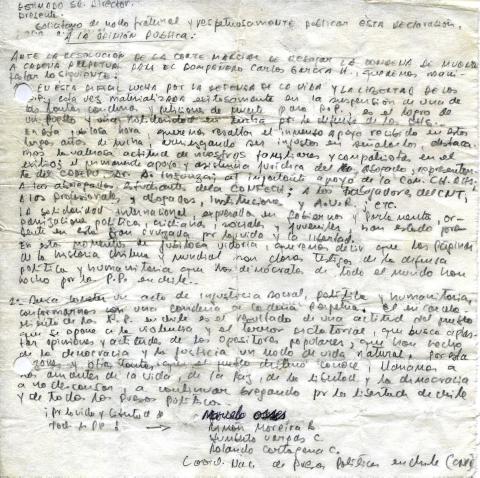 ESTIMADO SR. DIRECTOR.
presente.
solicitamos de modo fraternal y respetuosamente publicar ESTA DECLARACION.
A LA OPINION PUBLICA:
ANTE LA RESOLUCION DE LA CORTE MARCIAL DE REBAJAR LA CONDENA DE MUERTE
A CADENA PERPETUA PARA EL COMPAÑERO Carlos GARCIA H., queremos mani-
festar lo siguiente:
EN ESTA DIFICIL LUCHA POR LA DEFENSA DE LA VIDA Y LA LIBERTAD DE LOS
P.P., esta vez materializada exitosamente en la suspension de una de
las tantas condenas y peticiones de muerte para P.P., es el logro de
un pueblo y una solidaridad en lucha por la defensa de los
En esta jubilosa hora queremos resaltar el inmenso apoyo recibido en estos
largos años de lucha, arriesgando ser injustos en señalarlos destaca-
mos la valiosa actitud de nuestros familiares y compatriotas en el
exilio; el permanente apoyo y asistencia juridica del abogado, representan-
te del CODEPU Sr. al importante apoyo de la Com. CH. DD.HH.
A los abogados, Estudiantes de la CONFECH; A los Trabajadores del CNT,
A los profesionales, y abogados, instituciones y ETC.
La solidaridad internacional, expresada en Gobiernos y Parlamentos, or-
ganizaciones politicas, cristianas, sociales y juveniles, han estado pre-
sente en esta gran cruzada por la vida y la libertad.
En estos momentos de jubilosa victoria, queremos decir que las páginas
de la historia chilena y mundial son claros testigos de la defensa
politica y humanitaria que los demócratas de todo el mundo han
hecho por los P.P. en chile.
2.- un acto de injusticia social, politica y humanitaria,
conformarnos con una condena a cadena perpetua. El encarcela-
miento de en chile es el resultado de una actitud del pueblo
que se opone a la violencia y el terror dictatorial, que busca aplas-
tar opiniones y actitudes de los opositores populares, que han hecho
de la democracia y la justicia un modo de vida natural. por esta
razon y otras tantas, que el pueblo chileno conoce, llamamos a
los amantes de la vida, de la paz, de la libertad y la democracia
a no descansar, a continuar bregando por la libertad de chile
y de todos los presos politicos.
por la vida y libertad de
todos los PP
Marcelo osses
Ramón Moreira B
Humberto Vargas C.
Rolando Cartagena C.
Coord. Nac. de Presos Politicos en chile (CNPP)